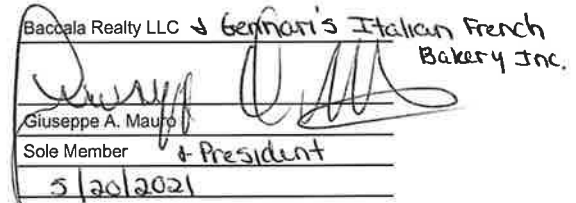 Baccala Realty LLC & Gennari's Italian French
Bakery Inc.
Giuseppe A. Mauro
Sole Member & President
5/20/2021